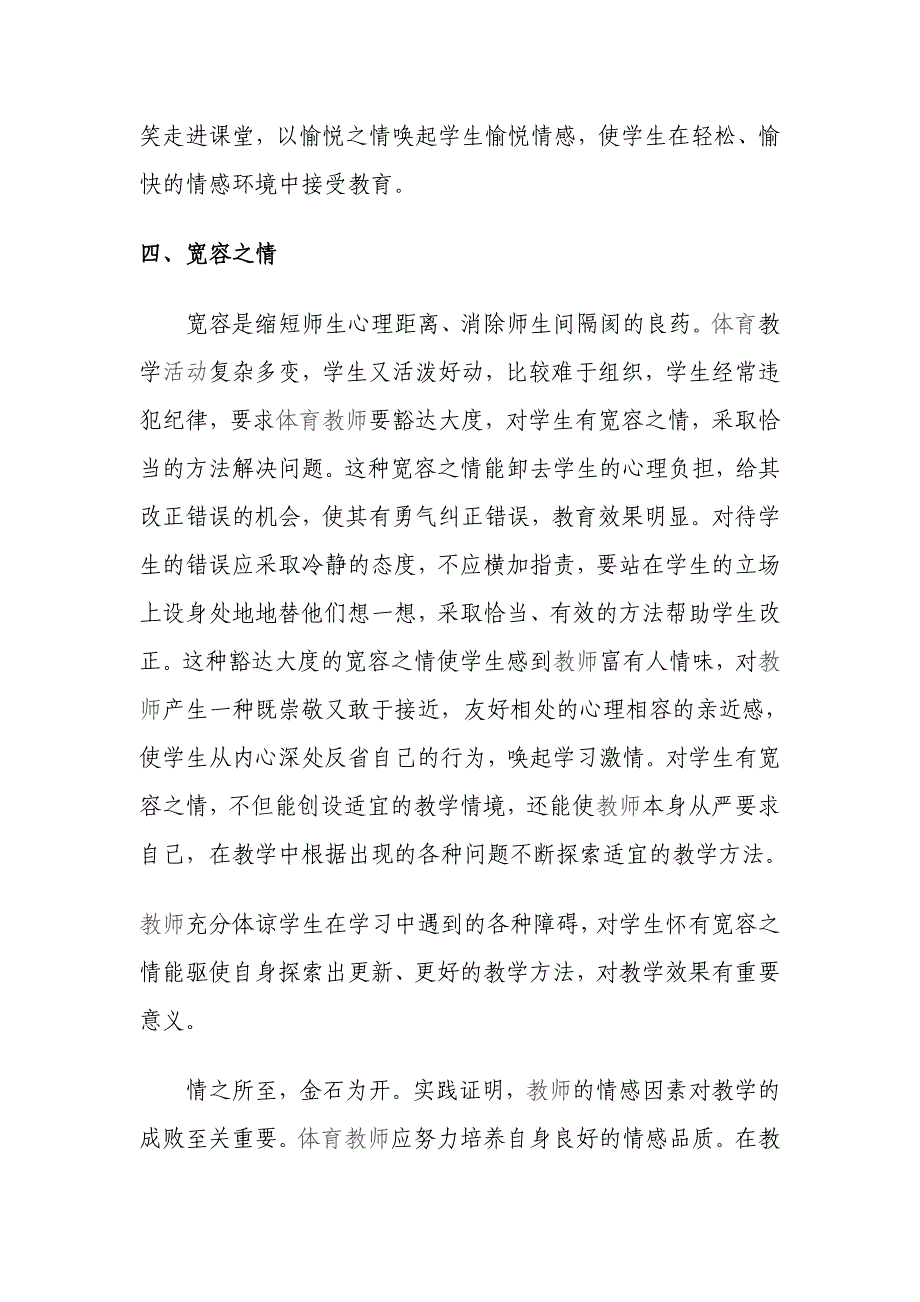 笑走进课堂，以愉悦之情唤起学生愉悦情感，使学生在轻松、愉
快的情感环境中接受教育。
四、宽容之情
宽容是缩短师生心理距离、消除师生间隔阂的良药。体育教
学活动复杂多变，学生又活泼好动，比较难于组织，学生经常违
犯纪律，要求体育教师要豁达大度，对学生有宽容之情，采取恰
当的方法解决问题。这种宽容之情能卸去学生的心理负担，给其
改正错误的机会，使其有勇气纠正错误，教育效果明显。对待学
生的错误应采取冷静的态度，不应横加指责，要站在学生的立场
上设身处地地替他们想一想，采取恰当、有效的方法帮助学生改
正。这种豁达大度的宽容之情使学生感到教师富有人情味，对教
师产生一种既崇敬又敢于接近，友好相处的心理相容的亲近感，
使学生从内心深处反省自己的行为，唤起学习激情。对学生有宽
容之情，不但能创设适宜的教学情境，还能使教师本身从严要求
自己，在教学中根据出现的各种问题不断探索适宜的教学方法。
教师充分体谅学生在学习中遇到的各种障碍，对学生怀有宽容之
情能驱使自身探索出更新、更好的教学方法，对教学效果有重要
意义。
情之所至，金石为开。实践证明，教师的情感因素对教学的
成败至关重要。体育教师应努力培养自身良好的情感品质。在教